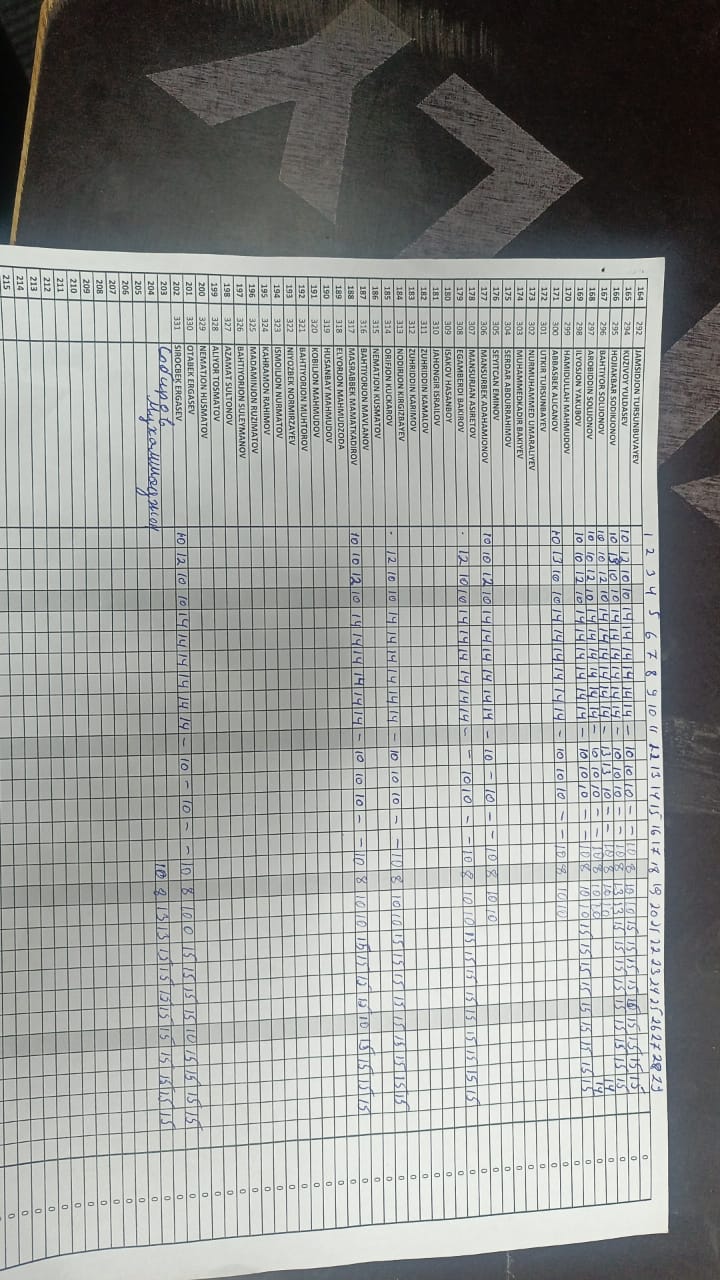 1 2 3 4 5 6 7 8 9 10 11 12 13 14 15 16 17 18 19 20 21 22 23 24 25 26 27 28 29
164 292 JAMSIDJON TURSUNBUVAYEV 0
165 294 KUZIVOY YULDASEV 10 12 10 10 14 14 14 14 14 14 - 10 10 10 - - 10 8 10 10 15 15 15 15 15 15 15 15 0
166 295 HOJIAKBAR SODIKJONOV 10 13 10 10 14 14 14 14 14 14 - 10 10 10 - - 10 8 13 13 15 15 15 15 15 15 15 15 15 0
167 296 BAHTIYOR SOLIJONOV 10 10 12 10 14 14 14 14 14 14 - 13 13 10 - - 10 8 10 10 14 0
168 297 AROBIDDIN SOLIJONOV 10 10 12 10 14 14 14 14 14 14 - 10 10 10 - - 10 8 10 10 14 0
169 298 ILYOSJON YAKUBOV 10 10 12 10 14 14 14 14 14 14 - 10 10 10 - - 10 8 10 10 15 15 15 15 15 15 15 15 15 0
170 299 HAMIDULLAH MAHMUDOV 0
171 300 ABBASBEK ALICANOV 10 13 10 10 14 14 14 14 14 14 - 10 10 10 - - 10 8 10 10 0
172 301 UTKIR TURSUNBAYEV 0
173 302 NURMUHAMMED UMARALIYEV 0
174 303 MUHAMMEDKADIR BAKIYEV 0
175 304 SERDAR ABDURRAHIMOV 0
176 305 SEYITCAN EMINOV 0
177 306 MANSURBEK ADAHAMJONOV 10 10 12 10 14 14 14 14 14 14 - 10 - 10 - - 10 8 10 10 0
178 307 MANSURJAN ASIRETOV 0
179 308 EGAMBERDI BAKIROV · 12 10 10 14 14 14 14 14 14 - - 10 10 - - 10 8 10 10 15 15 15 15 15 15 15 15 15 0
180 309 ISAKOV HASANBOY 0
181 310 JAHONGIR ISRAILOV 0
182 311 ZUHRIDDIN KAMALOV 0
183 312 ZUHRIDDIN KARIMOV 0
184 313 NODIRJON KIRGIZBAYEV 0
185 314 ORIFJON KUCKAROV · 12 10 10 14 14 14 14 14 14 - 10 10 10 - - 10 8 10 10 15 15 15 15 15 15 15 15 15 0
186 315 NEMATJON KUSMATOV 0
187 316 BAHTIYORJON MAVLANOV 0
188 317 MASRABBEK MAMATKADIROV 10 10 12 10 14 14 14 14 14 14 - 10 10 10 - - 10 8 10 10 15 15 15 15 10 15 15 15 15 0
189 318 ELYORJON MAHMUDZODA 0
190 319 HUSANBAY MAHMUDOV 0
191 320 KOBILJON MAHMUDOV 0
192 321 BAHTIYORJON MUHTOROV 0
193 322 NIYOZBEK NORMIRZAYEV 0
194 323 ISMOILJON NURMATOV 0
195 324 KAHRAMON RAHIMOV 0
196 325 MADAMINJON RUZIMATOV 0
197 326 BAHTIYORJON SULEYMANOV 0
198 327 AZAMAT SULTONOV 0
199 328 ALIYOR TOSMATOV 0
200 329 NEMATJON HUSMATOV 0
201 330 OTABEK ERGASEV 0
202 331 SIROCBEK ERGASEV 10 12 10 10 14 14 14 14 14 14 - 10 - 10 - - 10 8 10 0 15 15 15 15 10 15 15 15 15 0
203 Собиров 0
204 Мухаммаджон 10 8 13 13 15 15 15 15 15 15 15 15 15 0
205 0
206 0
207 0
208 0
209 0
210 0
211 0
212 0
213 0
214 0
215 0